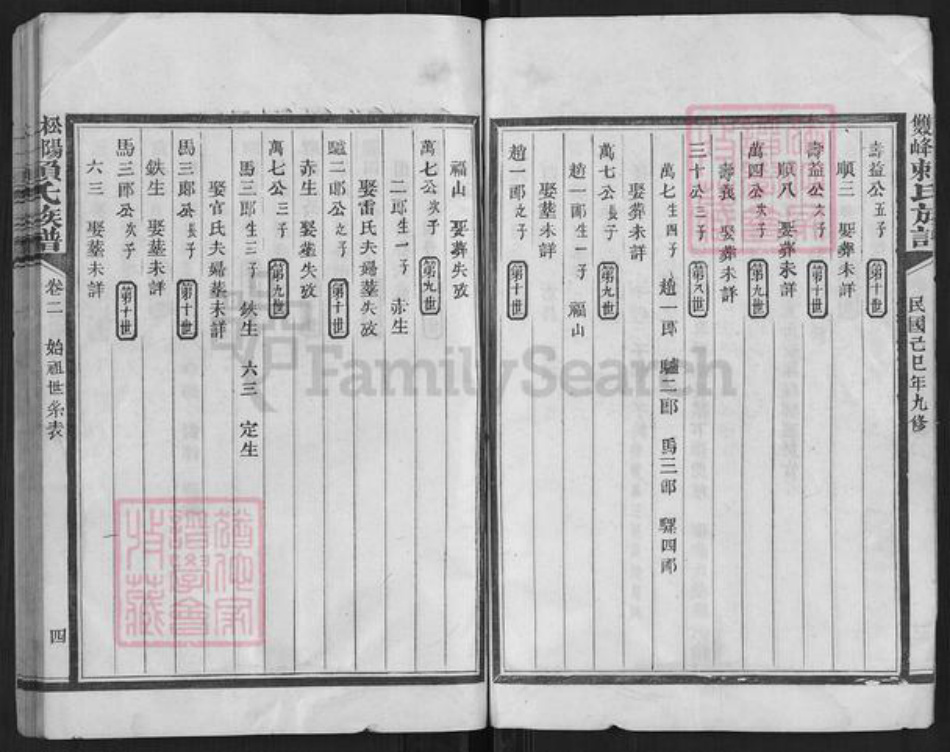 雙峰賴氏族譜 民國己巳年九修
壽益公五子 第十世
順三 娶葬未詳
壽益公六子 第十世
順八 娶葬未詳
萬四公次子 第九世
壽義 娶葬未詳
三十公三子 第八世
萬七 生四子 趙一郎 驢二郎 馬三郎 騾四郎
娶葬未詳
萬七公長子 第九世
趙一郎 生一子 福山
娶塟未詳
趙一郎之子 第十世
福山 娶葬失攷
萬七公次子 第九世
二郎 生一子 赤生
娶雷氏夫婦塟失攷
驢二郎公之子 第十世
赤生 娶塟失攷
萬七公三子 第九世
馬三郎 生三子 鉄生 六三 定生
娶官氏夫婦塟未詳
馬三郎公長子 第十世
鉄生 娶塟未詳
馬三郎公次子 第十世
六三 娶塟未詳
松陽賴氏族譜 卷二 始祖世系表 四
FamilySearch